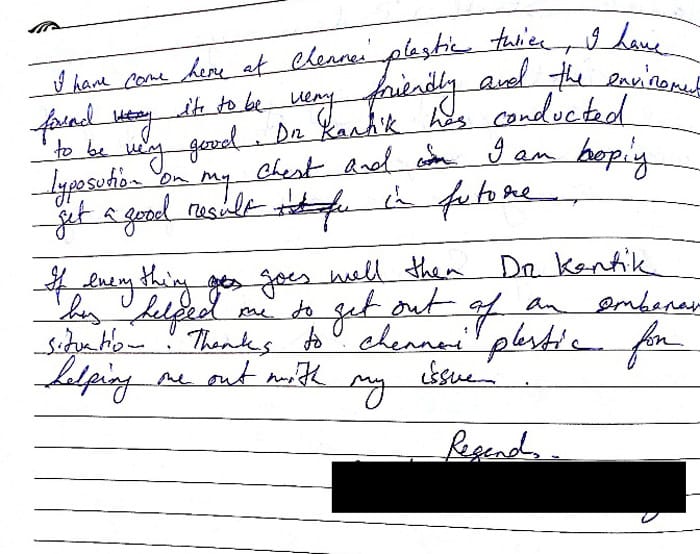 I have come here at Chennai plastic twice, I have
found its to be very friendly and the enviroment
to be very good. Dr Kartik has conducted
lyposution on my chest and I am hopiy
get a good result in future.
If everything goes well then Dr Kartik
has helped me to get out of an embarras
situation. Thanks to chennai plastic for
helping me out with my issue.
Regards.